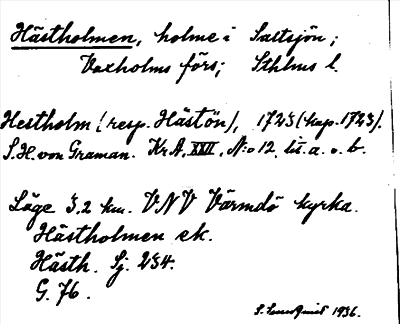 Hästholmen, holme i Saltsjön;
Vaxholms förs; Sthlms l.
Hestholm (resp. Hästön), 1723 (kop. 1723).
S. H. von Graman. Kr. A. XXII, N:o 12, lit. a. o. b.
Läge 3,2 km. VNV Värmdö kyrka.
Hästholmen ek.
Hästh. Sj. 234.
G. 76.
1936.